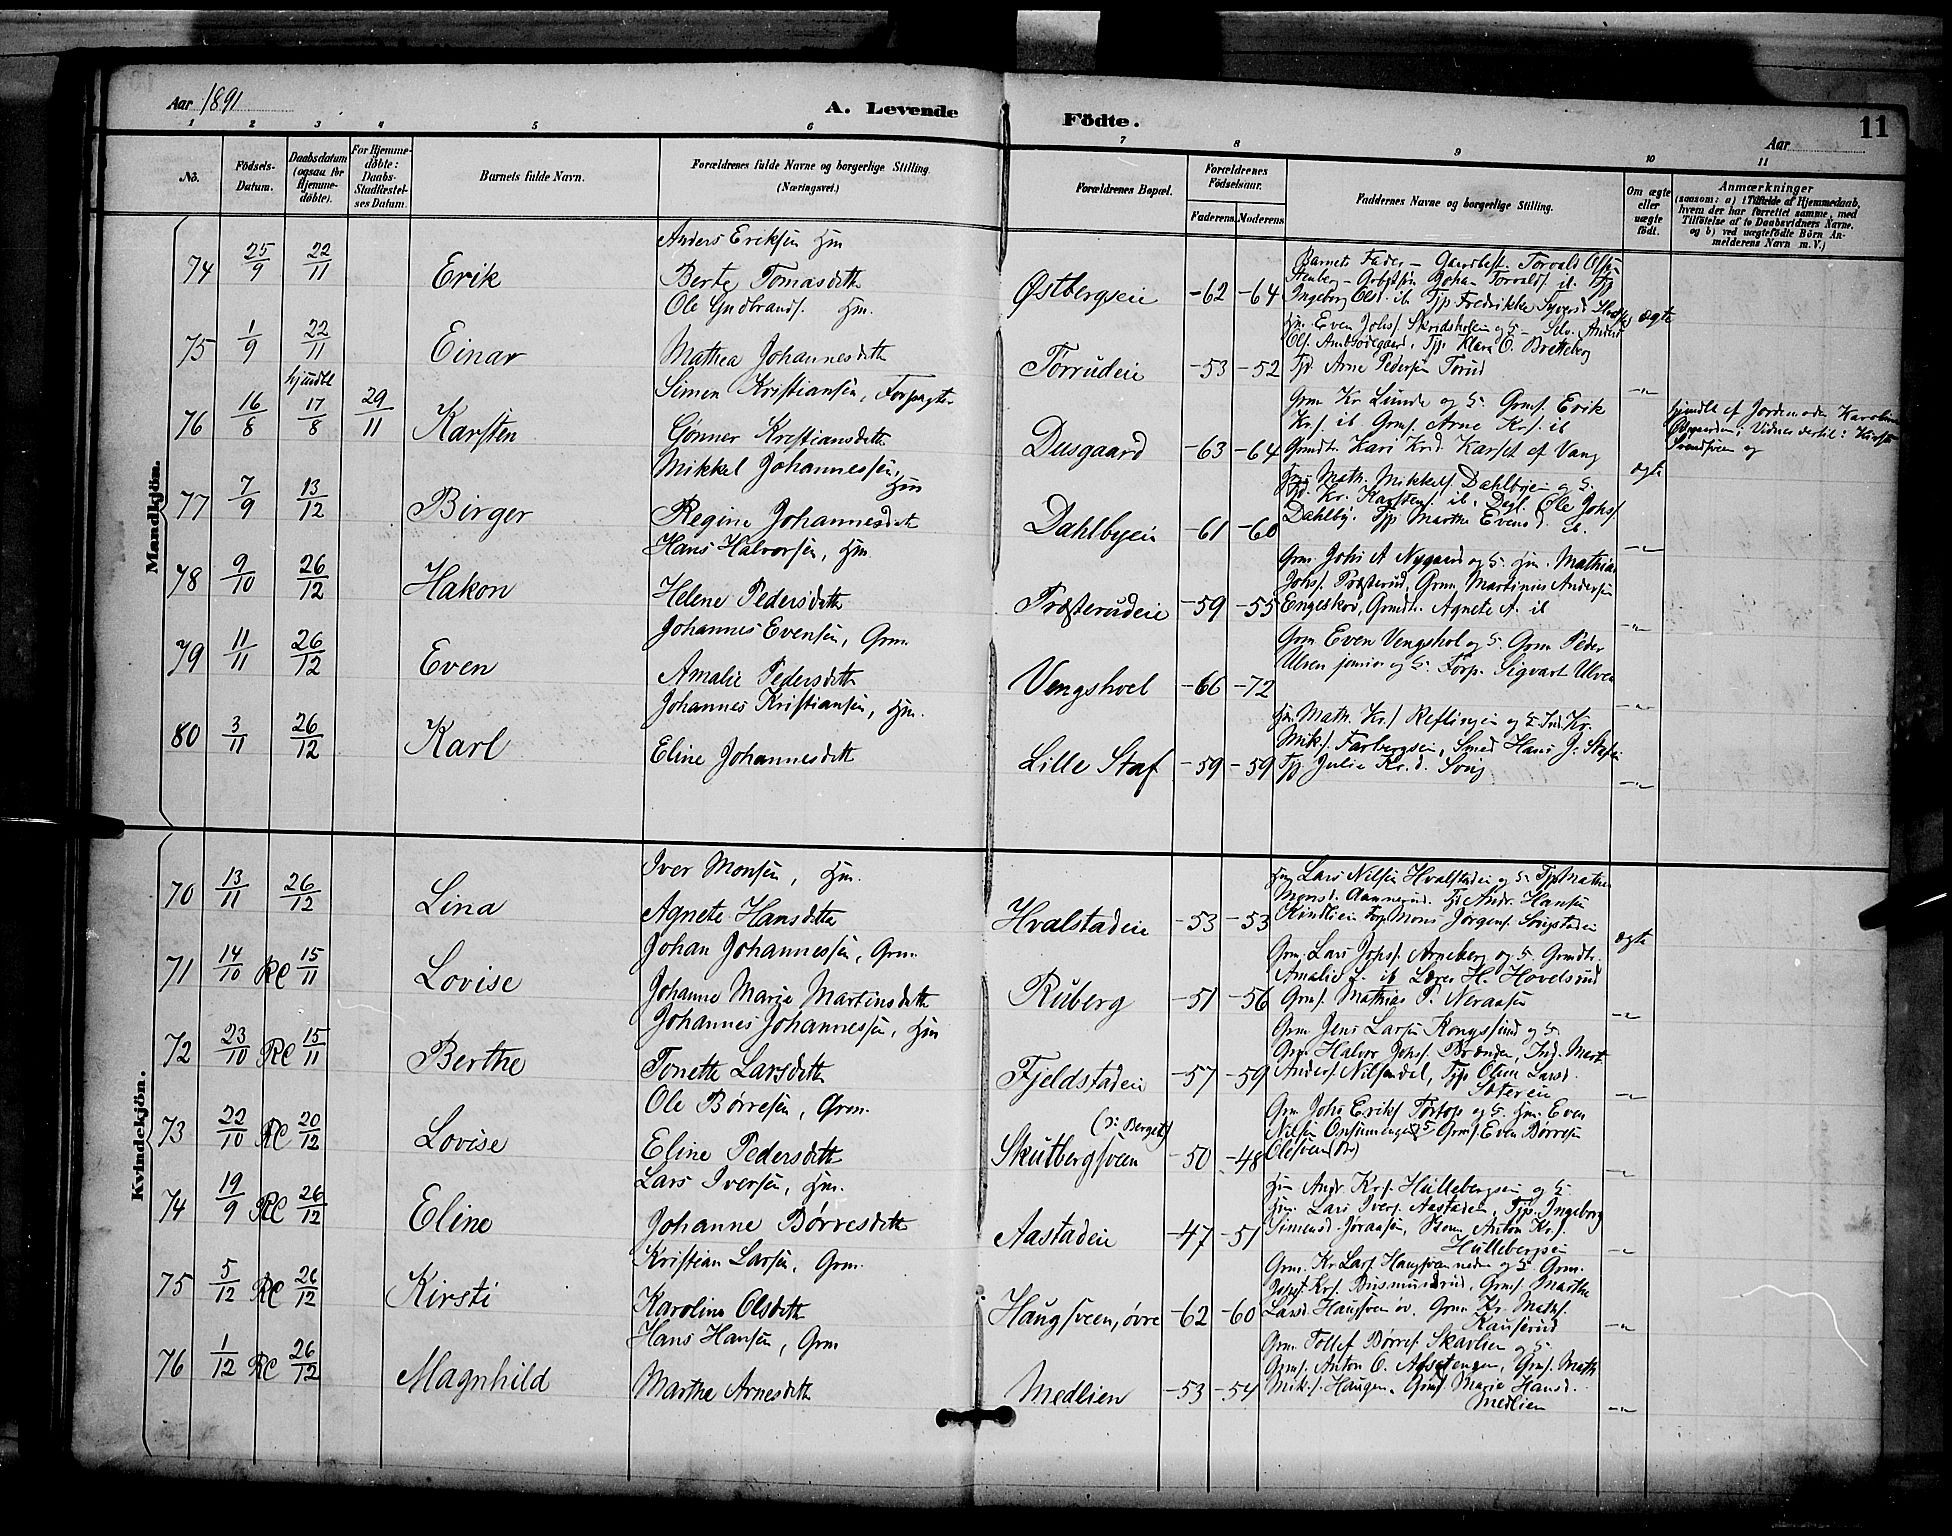 Aar 1891
A. Levende Födte.
11
Aar
1 2 3 4 5 6 7 8 9 10 11
No.
Födsels-Datum.
Daabsdatum (ogsaa for Hjemme-döbte).
For Hjemme-döbte: Daabs-Stadfæstel-ses Datum.
Barnets fulde Navn.
Forældrenes fulde Navne og borgerlige Stilling. (Næringsvei.)
Forældrenes Bopæl.
Forældrenes Födselsaar.
Faderens. Moderens.
Faddernes Navne og borgerlige Stilling.
Om ægte eller uægte født.
Anmærkninger
(saasom: a) i Tilfælde af Hjemmedaab,
hvem der har forrettet samme, med
Tilföielse af to Daabsvidners Navne.
og b) ved uægtefödte Börn An-
melderens Navn m. V.)
Mandkjön.
74 25/9 22/11 Erik
Anders Eriksen Hm
Berte Tomasdtt
Østbergseie -62 -64
Barnets Fader - Torvald
Johan Torvalds. ib. Tjp
Ingeborg Olsd. ib. Tjp Fredrikke Syvers
ægte
75 1/9 22/11 Einar
Ole Gudbrands. Hm.
Mathea Johannesdtt
Torrudeie -53 -52
Hm. Even Johs.
Tjp Klara O. Bretteberg
Arne Pedersen Torud
-"-
76 16/8 hjmdbt 17/8 29/11 Karsten
Simen Kristiansen, Forpagter
Gønner Kristiansdtt
Dusgaard -63 -64
Grm Kr Lunde og H. Grms. Erik
Krs. ib. Grms. Arne Krs. ib
Grmdtr. Kari Krd. Karset af Vang
ægte
hjmdbt af Jordemoder Karoline
Vidner dertil:
77 7/9 13/12 Birger
Mikkel Johannessen, Hm
Regine Johannesdtt
Dahlbyeie -61 -60
Hm. Math. Mikkels. Dahlbyei og H.
Kr. Karstens. ib. Ole Johs.
Dahlby. Tjp Marthe Evensd. ib.
-"-
78 9/10 26/12 Hakon
Hans Halvorsen, Hm.
Helene Pedersdtt
Præsterudeie -59 -55
Grm. Johs A Nygaard og H. Hm. Mathias
Johs. Præsterud, Grm. Martinius Andersen
Engeskov, Grmdtr. Agnete A. ib
-"-
79 11/11 26/12 Even
Johannes Evensen, Grm.
Amalie Pedersdtt
Vengshoel -66 -72
Grm Even Vengshol og H. Grm Peder
Ulven junior og H. Forp. Sigvart Ulven
-"-
80 3/11 26/12 Karl
Johannes Kristiansen, Hm.
Eline Johannesdtt
Lille Staf -59 -59
Hm. Math. Krs. Reflingei og H. Ind. Kr.
Miks. Farbergsei, Smed Hans J.
Tjp Julie Kr.d.
-"-
Kvindekjön.
70 13/11 26/12 Lina
Iver Monsen, Hm.
Agnete Hansdtt
Hvalstadeie -53 -53
Hm Lars Nilsen Hvalstadei og H. Tjp Mathea
Monsd. Andr. Hansen
Kindlien Forp Mons Jørgens.
ægte
71 14/10 RC 15/11 Lovise
Johan Johannessen, Grm.
Johanne Marie Martinsdtt
Ruberg -51 -56
Grm. Lars Johs. Arneberg og H. Grmdtr.
Amalie L. ib Lærer H. Hovelsrud
Grms. Mathias P. Neraasen
-"-
72 23/10 RC 15/11 Berthe
Johannes Johannessen, Hm
Tonette Larsdtt
Fjeldstadeie -57 -59
Grm Jens Larsen Kongslund og H.
Grm. Halvor Johs. Brænden, Ind. Mart.
Anders. Nilsendal, Tjp Oline Larsd.
-"-
73 22/10 RC 20/12 Lovise
Ole Børresen, Grm.
Eline Pedersdtt
Skutbergsveen (ɔ: Berget) -50 -48
Grm Johs Eriks. Tortop og H. Hm. Even
Nilsen og H. Grms. Even Børresen
-"-
74 19/9 RC 26/12 Eline
Lars Iversen, Hm.
Johanne Børresdtt
Aastadeie -47 -51
Hm Andr. Krs. Hullebergseie og H.
Hm. Lars Ivers. Aastadei, Tjp. Ingeborg
Simensd. Joraasen, Anton Krs.
Hullebergsei
-"-
75 5/12 RC 26/12 Kirsti
Kristian Larsen, Grm.
Karoline Olsdtt
Haugsveen, øvre -62 -60
Grm. Kr Lars. Haugsveen nedre og H. Grm.
Krs. Grms. Marthe
Larsd. Haugsveen øv. Grm. Kr. Maths.
Kauserud
-"-
76 1/12 RC 26/12 Magnhild
Hans Hansen, Grm
Marthe Arnesdtt
Medlien -53 -54
Grm. Tollef Børres. Skavlien og H.
Grms. Anton O. Grms. Math
Miks. Haugen. Marie Hansd.
Medlien
-"-